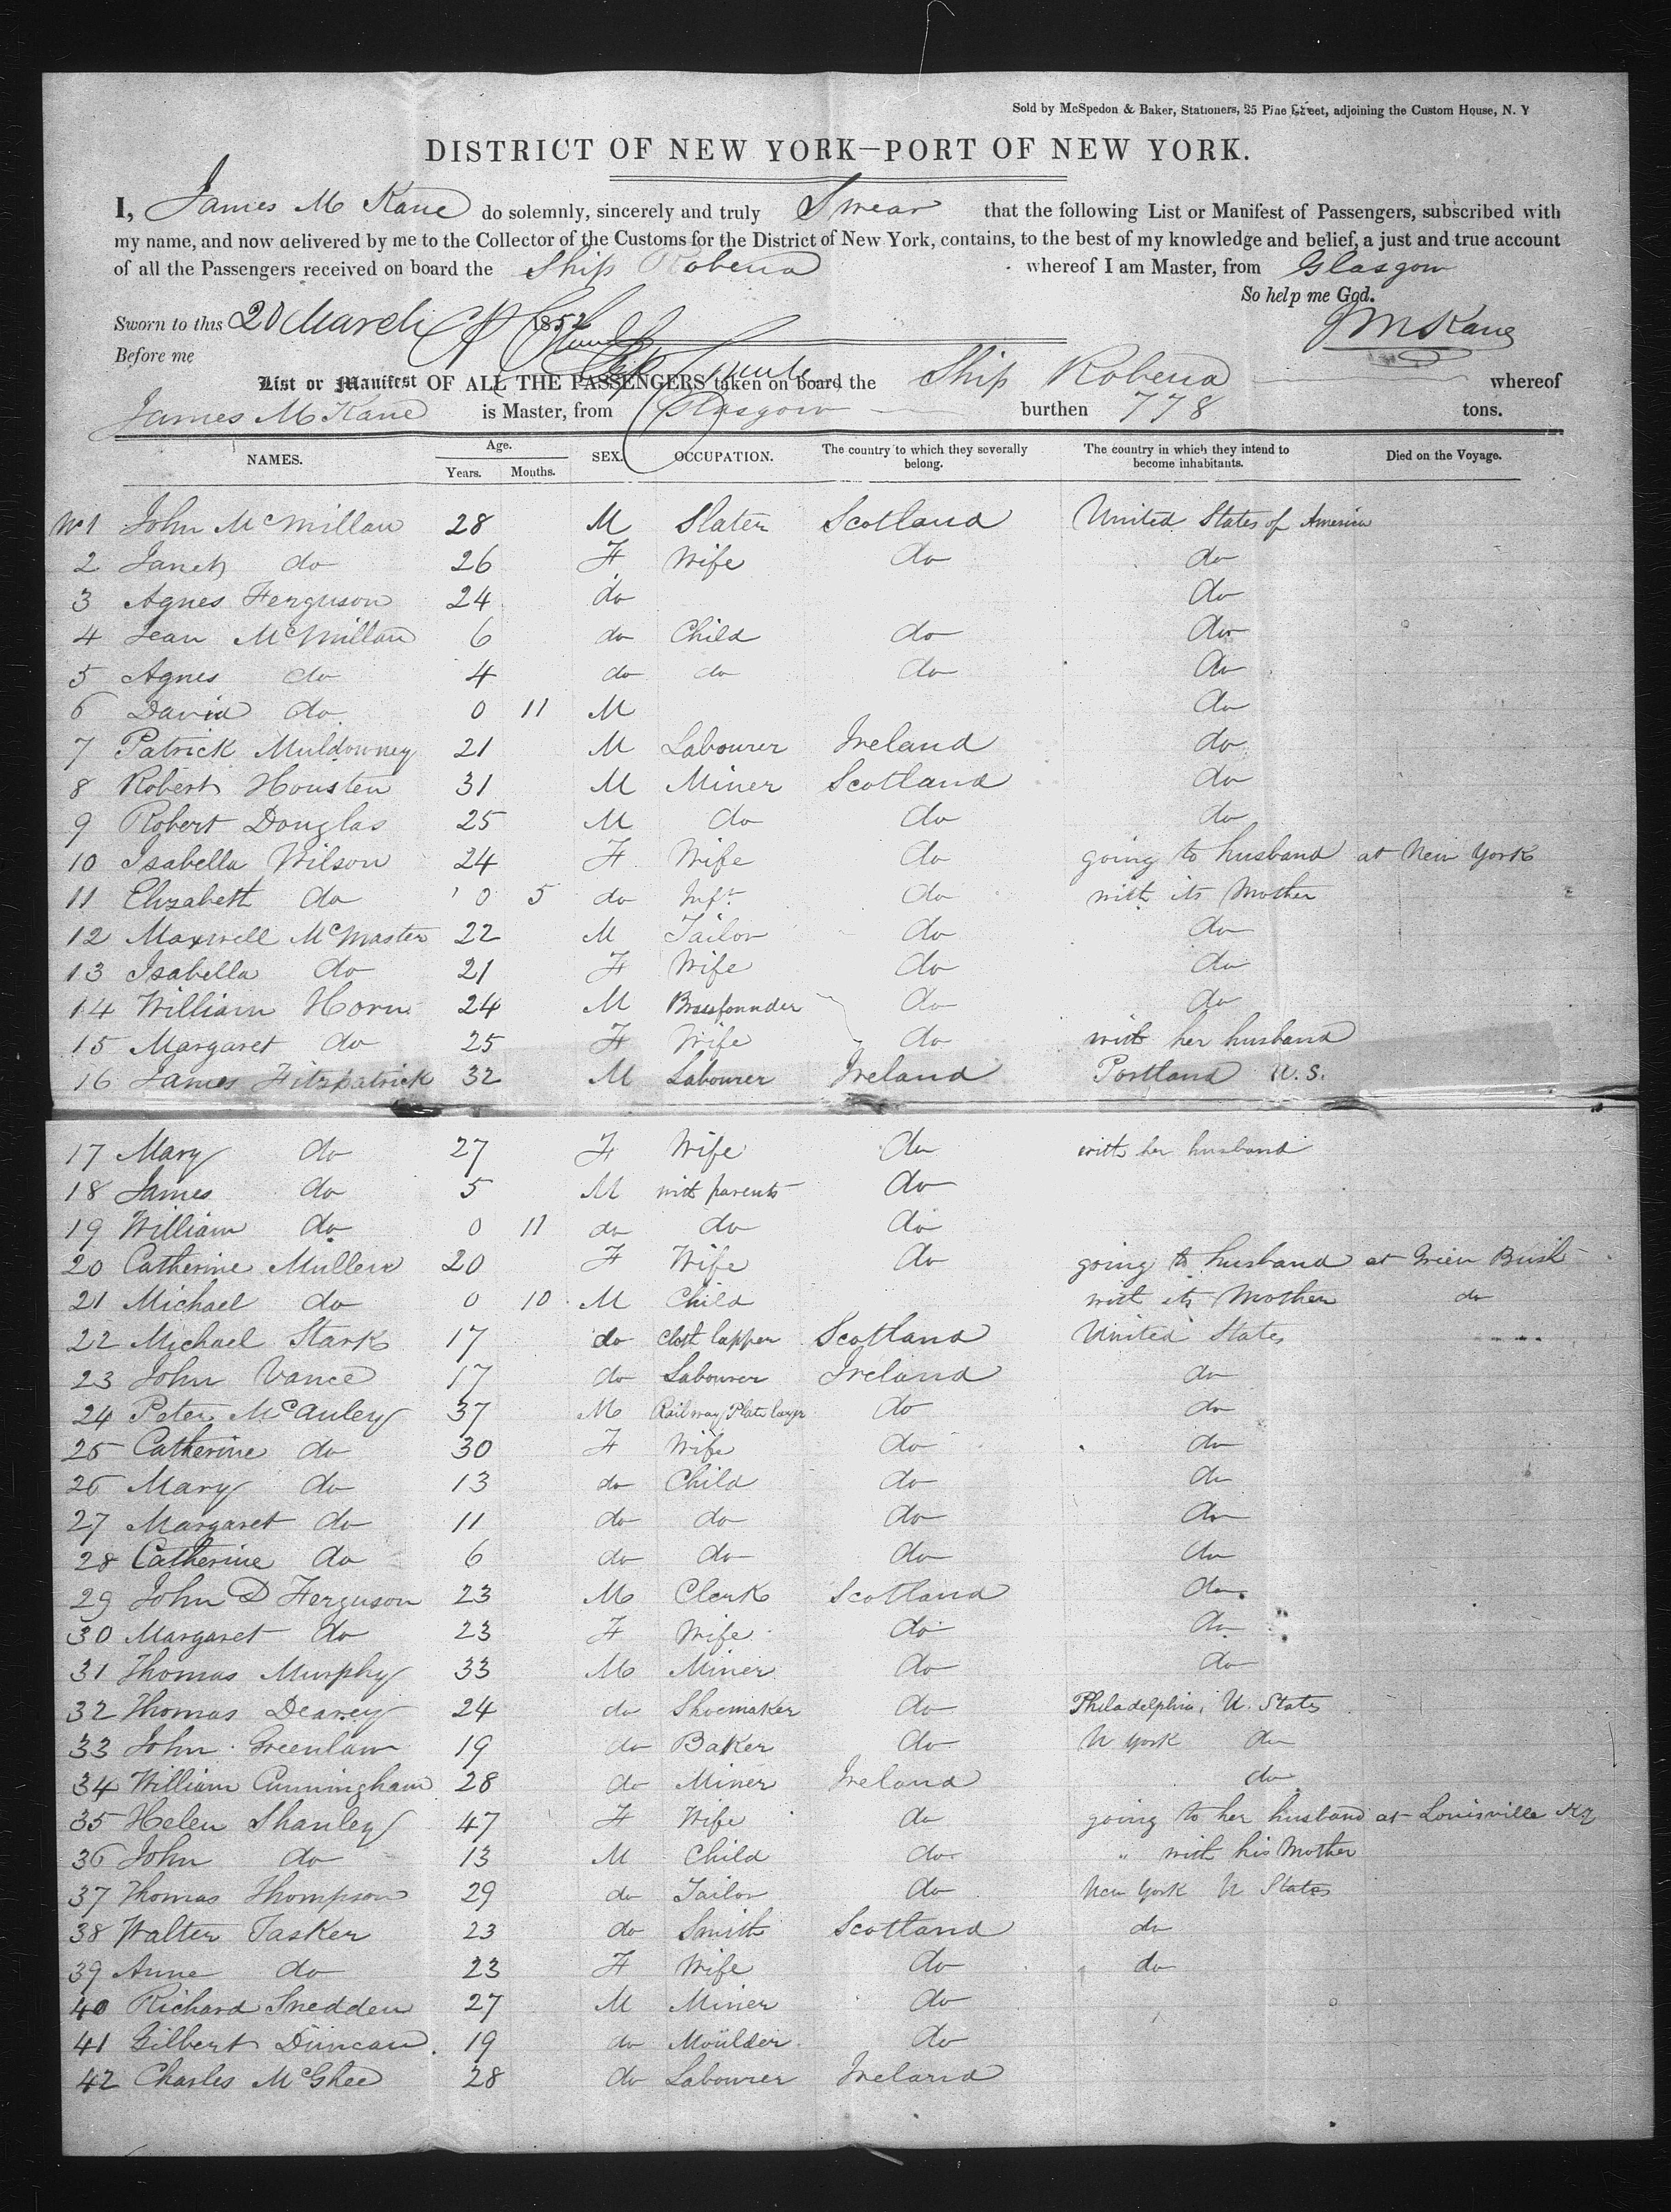 Sold by McSpedon & Baker, Stationers, 25 Pine Street, adjoining the Custom House, N. Y
DISTRICT OF NEW YORK—PORT OF NEW YORK.
I, James M Kane do solemnly, sincerely and truly Swear that the following List or Manifest of Passengers, subscribed with
my name, and now delivered by me to the Collector of the Customs for the District of New York, contains, to the best of my knowledge and belief, a just and true account
of all the Passengers received on board the Ship Robena whereof I am Master, from Glasgow
So help me God.
Sworn to this 20 March 1852 J M Kane
Before me
List or Manifest OF ALL THE PASSENGERS taken on board the Ship Robena whereof
James M Kane is Master, from Glasgow burthen 778 tons.
NAMES. Age. Years. Months. SEX. OCCUPATION. The country to which they severally belong. The country in which they intend to become inhabitants. Died on the Voyage.
No 1 John McMillan 28 M Slater Scotland United States of America
2 Janet do 26 F Wife do do
3 Agnes Ferguson 24 do do
4 Jean McMillan 6 do Child do do
5 Agnes do 4 do do do do
6 David do 0 11 M do
7 Patrick Muldowney 21 M Labourer Ireland do
8 Robert Housten 31 M Miner Scotland do
9 Robert Douglas 25 M do do do
10 Isabella Wilson 24 F Wife do going to husband at New York
11 Elizabeth do 0 5 do Inft do with its Mother
12 Maxwell McMaster 22 M Tailor do do
13 Isabella do 21 F Wife do do
14 William Horn 24 M Brassfounder do do
15 Margaret do 25 F Wife do with her husband
16 James Fitzpatrick 32 M Labourer Ireland Portland U.S.
17 Mary do 27 F Wife do with her husband
18 James do 5 M with parents do
19 William do 0 11 do do do
20 Catherine Mullen 20 F Wife do going to husband at Green Bush
21 Michael do 0 10 M Child with its Mother do
22 Michael Stark 17 do Cloth lapper Scotland United States
23 John Vance 17 do Labourer Ireland do
24 Peter McAuley 37 M Railway Plate layer do do
25 Catherine do 30 F Wife do do
26 Mary do 13 do Child do do
27 Margaret do 11 do do do do
28 Catherine do 6 do do do do
29 John D Ferguson 23 M Clerk Scotland do
30 Margaret do 23 F Wife do do
31 Thomas Murphy 33 M Miner do do
32 Thomas Dearey 24 do Shoemaker do Philadelphia, U. States
33 John Greenlaw 19 do Baker do N York do
34 William Cunningham 28 do Miner Ireland do
35 Helen Shanley 47 F Wife do going to her husband at Louisville Ky
36 John do 13 M Child do " with his Mother
37 Thomas Thompson 29 do Tailor do New York U States
38 Walter Tasker 23 do Smith Scotland do
39 Anne do 23 F Wife do do
40 Richard Snedden 27 M Miner do
41 Gilbert Duncan 19 do Moulder do
42 Charles McGhee 28 do Labourer Ireland